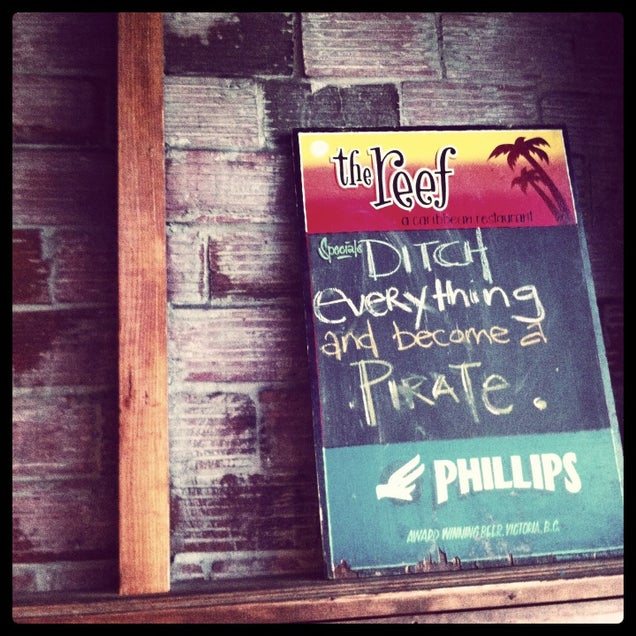 the reef
a caribbean restaurant
Specials
DITCH
everything
and become a
PIRATE.
PHILLIPS
AWARD WINNING BEER, VICTORIA, B.C.